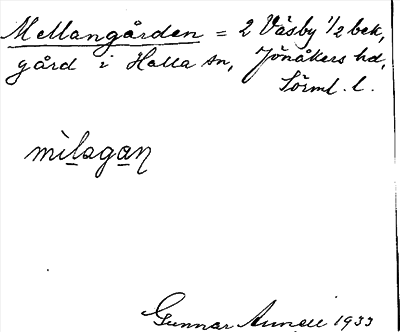 Mellangården = 2 Väsby 1/2 bek,
gård i Halla sn, Jönåkers hd,
Sörml. l.
Gunnar 1933